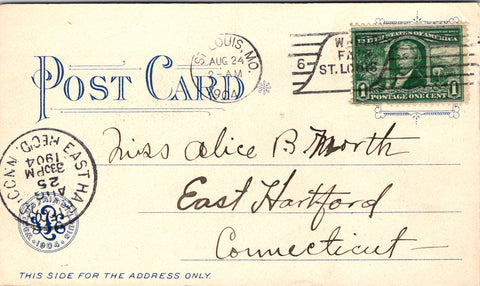 ST. LOUIS, MO.
AUG 24
2-AM
1904
6-
W
FA
ST. LOUIS
U.S. OF AMERICA
1
POSTAGE ONE CENT
1
POST CARD
EAST HA
CONN. REC'D.
AUG
25
330PM
1904
Miss Alice B North
East Hartford
Connecticut
1904
THIS SIDE FOR THE ADDRESS ONLY.